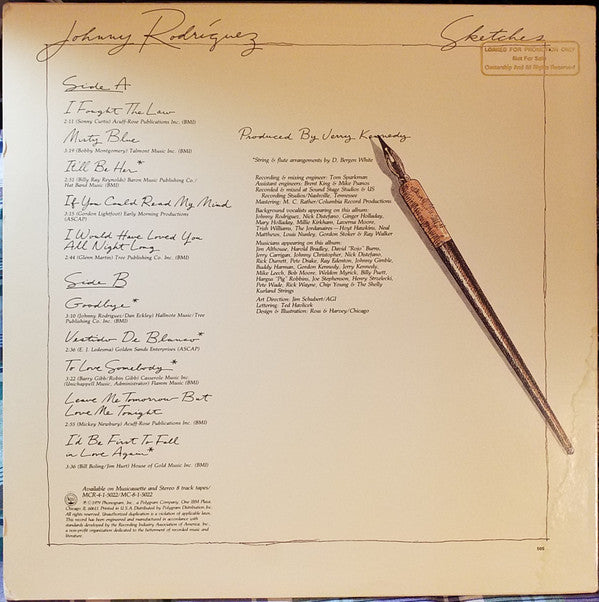 Johnny Rodríguez
Sketches
LOANED FOR PROMOTION ONLY
Not For Sale
Ownership And All Rights Reserved
Side A
I Fought The Law
2:11 (Sonny Curtis) Acuff-Rose Publications Inc. (BMI)
Misty Blue
3:19 (Bobby Montgomery) Talmont Music Inc. (BMI)
It'll Be Her*
2:51 (Billy Ray Reynolds) Baron Music Publishing Co./
Hat Band Music (BMI)
If You Could Read My Mind
3:15 (Gordon Lightfoot) Early Morning Productions
(ASCAP)
I Would Have Loved You
All Night Long
2:44 (Glenn Martin) Tree Publishing Co. Inc. (BMI)
Side B
Goodbye*
3:10 (Johnny Rodriguez/Dan Eckley) Hallnote Music/Tree
Publishing Co. Inc. (BMI)
Vestido De Blanco*
2:36 (E. J. Ledesma) Golden Sands Enterprises (ASCAP)
To Love Somebody*
3:22 (Barry Gibb/Robin Gibb) Casserole Music Inc.
(Unichappell Music, Administrator) Flamm Music (BMI)
Leave Me Tomorrow But
Love Me Tonight
2:55 (Mickey Newbury) Acuff-Rose Publications Inc. (BMI)
I'd Be First To Fall
in Love Again*
3:36 (Bill Boling/Jim Hurt) House of Gold Music Inc. (BMI)
Produced By Jerry Kennedy
*String & flute arrangements by D. Bergen White
Recording & mixing engineer: Tom Sparkman
Assistant engineers: Brent King & Mike Psanos
Recorded & mixed at Sound Stage Studios & US
Recording Studios/Nashville, Tennessee
Mastering: M. C. Rather/Columbia Record Productions
Background vocalists appearing on this album:
Johnny Rodriguez, Nick Distefano, Ginger Holladay,
Mary Holladay, Millie Kirkham, Laverna Moore,
Trish Williams, The Jordanaires—Hoyt Hawkins, Neal
Matthews, Louis Nunley, Gordon Stoker & Ray Walker
Musicians appearing on this album:
Jim Althouse, Harold Bradley, David "Rojo" Burns,
Jerry Carrigan, Johnny Christopher, Nick Distefano,
Rick Durrett, Pete Drake, Ray Edenton, Johnny Gimble,
Buddy Harman, Gordon Kennedy, Jerry Kennedy,
Mike Leech, Bob Moore, Weldon Myrick, Billy Puett,
Hargus "Pig" Robbins, Joe Stephenson, Henry Strzelecki,
Pete Wade, Rick Wayne, Chip Young & The Shelly
Kurland Strings
Art Direction: Jim Schubert/AGI
Lettering: Ted Havlicek
Design & Illustration: Ross & Harvey/Chicago
Available on Musicassette and Stereo 8 track tapes/
MCR-4-1-5022/MC-8-1-5022
℗ © 1979 Phonogram, Inc., a Polygram Company. One IBM Plaza,
Chicago, IL 60611. Printed in U.S.A. Distributed by Polygram Distribution, Inc.
All rights reserved. Unauthorized duplication is a violation of applicable laws.
This record has been engineered and manufactured in accordance with
standards developed by the Recording Industry Association of America, Inc.,
a non-profit organization dedicated to the betterment of recorded music and
literature.